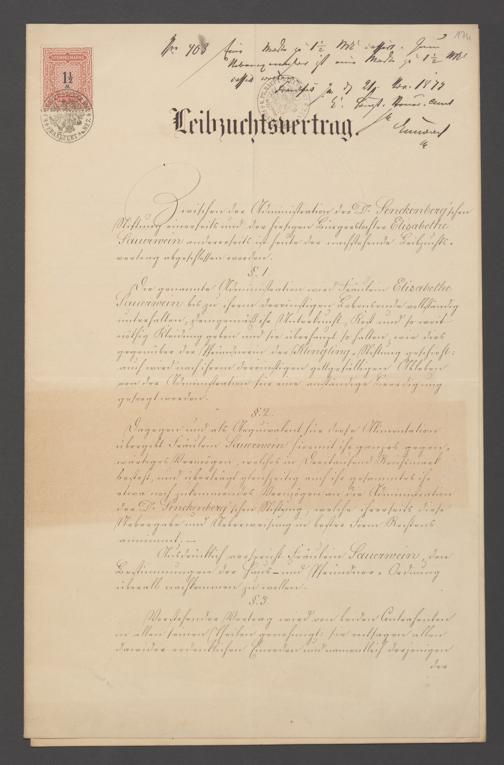 No. 408 Eine Marke zu 1½ Mk cassirt. Zum
ist eine Marke zu 1½ Mk
cassirt worden.
Frankfurt
STEMPELMARKE
1½
M.
Leibzuchtsvertrag.
Zwischen der Administration der Dr. Senckenberg'schen
Stiftung einerseits und der hiesigen Bürgerstochter Elisabethe
Sauerwein andererseits ist heute der nachstehende Leibzuchts-
vertrag abgeschlossen worden.
§. 1.
Die genannte Administration wird Fräulein Elisabethe
Sauerwein bis zu ihrem dereinstigen Lebensende vollständig
unterhalten, demgemäß ihr Unterkunft, Kost und so weit
nöthig Kleidung geben und sie überhaupt so halten, wie dies
gegenüber der Pfründnern der Klingling-Stiftung geschieht;
auch wird nach ihrem dereinstigen gottgefälligen Ableben
von der Administration für eine anständige Beerdigung
gesorgt werden.
§. 2.
Dagegen und als Aequivalent für diese Alimentation
übergibt Fräulein Sauerwein hiermit ihr ganzes gegen-
wärtiges Vermögen, welches in Dreitausend Reichsmark
besteht, und überträgt gleichzeitig auch ihr gesammtes ihr
etwa noch zukommendes Vermögen an die Administration
der Dr. Senckenberg'schen Stiftung, welche ihrerseits diese
Uebergabe und Ueberweisung in bester Form Rechtens
annimmt. —
Ausdrücklich verspricht Fräulein Sauerwein, den
Bestimmungen der Haus- und Pfründner-Ordnung
überall nachkommen zu wollen.
§. 3.
Vorstehender Vertrag wird von beiden Contrahenten
in allen seinen Theilen genehmigt; sie entsagen allen
dawider erdenklichen Einreden und namentlich derjenigen
der